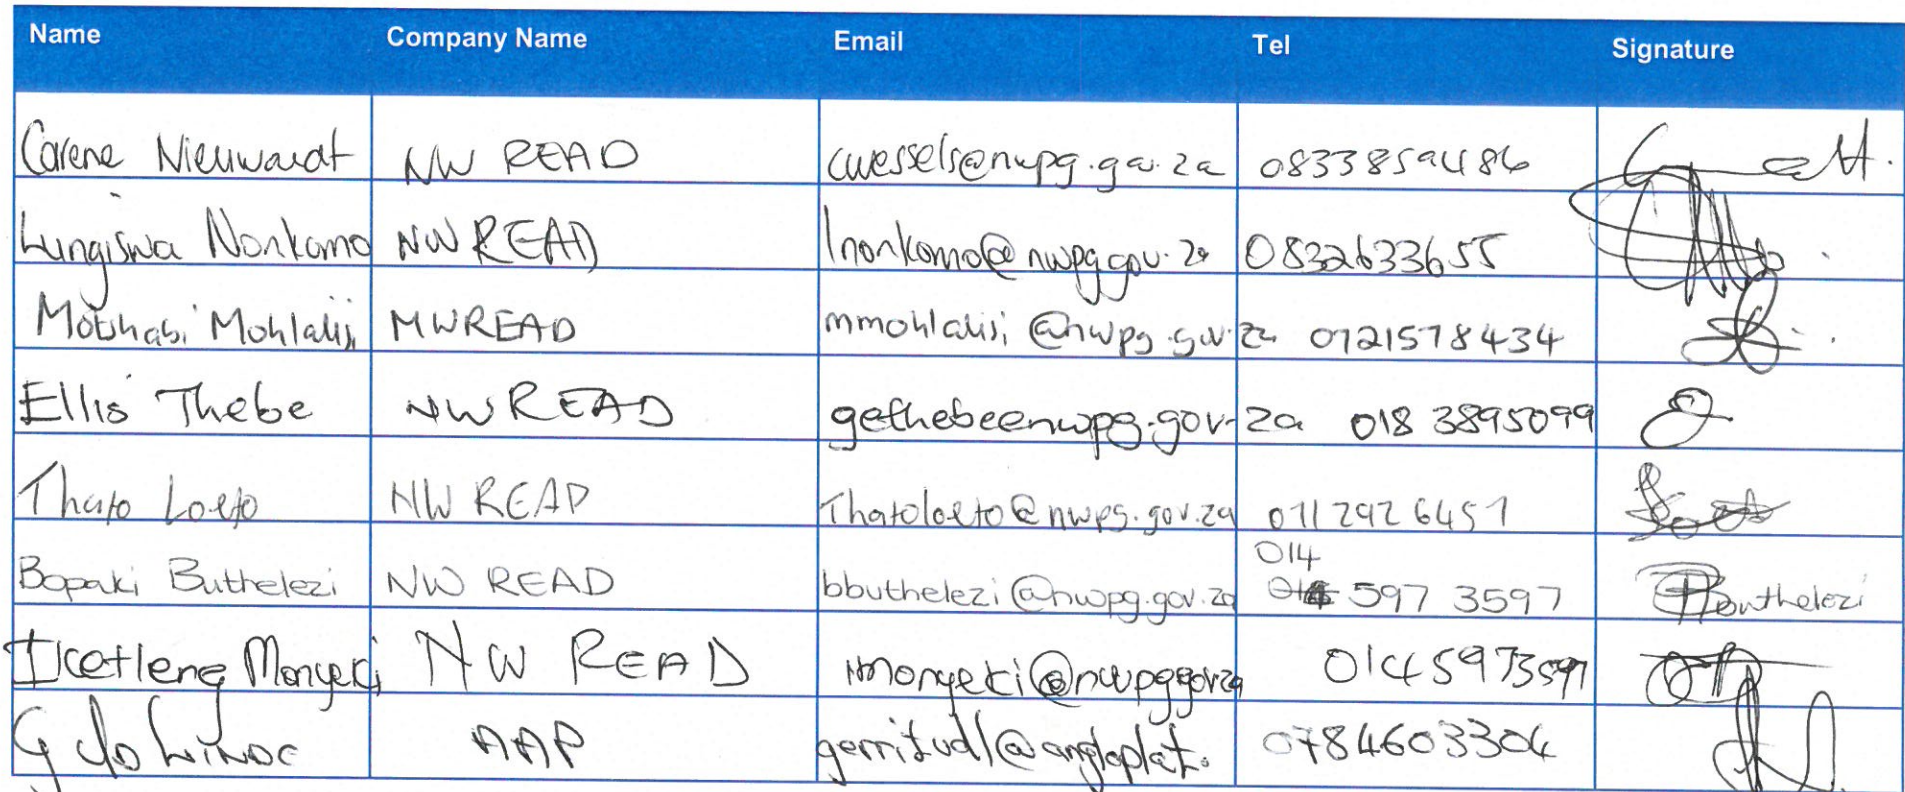 Name Company Name Email Tel Signature
Carene Nieuwoudt NW READ cwessels@nwpg.gov.za 0833859486
Lungiswa Nonkomo NW READ lnonkomo@nwpg.gov.za 0832633655
Mohlalisi MWREAD mmohlalisi@nwpg.gov.za 0721578434
Ellis Thebe NW READ gethebe@nwpg.gov.za 018 3895099
Thato Loeto NW READ Thatoloeto@nwpg.gov.za
014
Bopaki Buthelezi NW READ bbuthelezi@nwpg.gov.za 597 3597 Buthelezi
NW READ 0145973597
AAP 0784603304